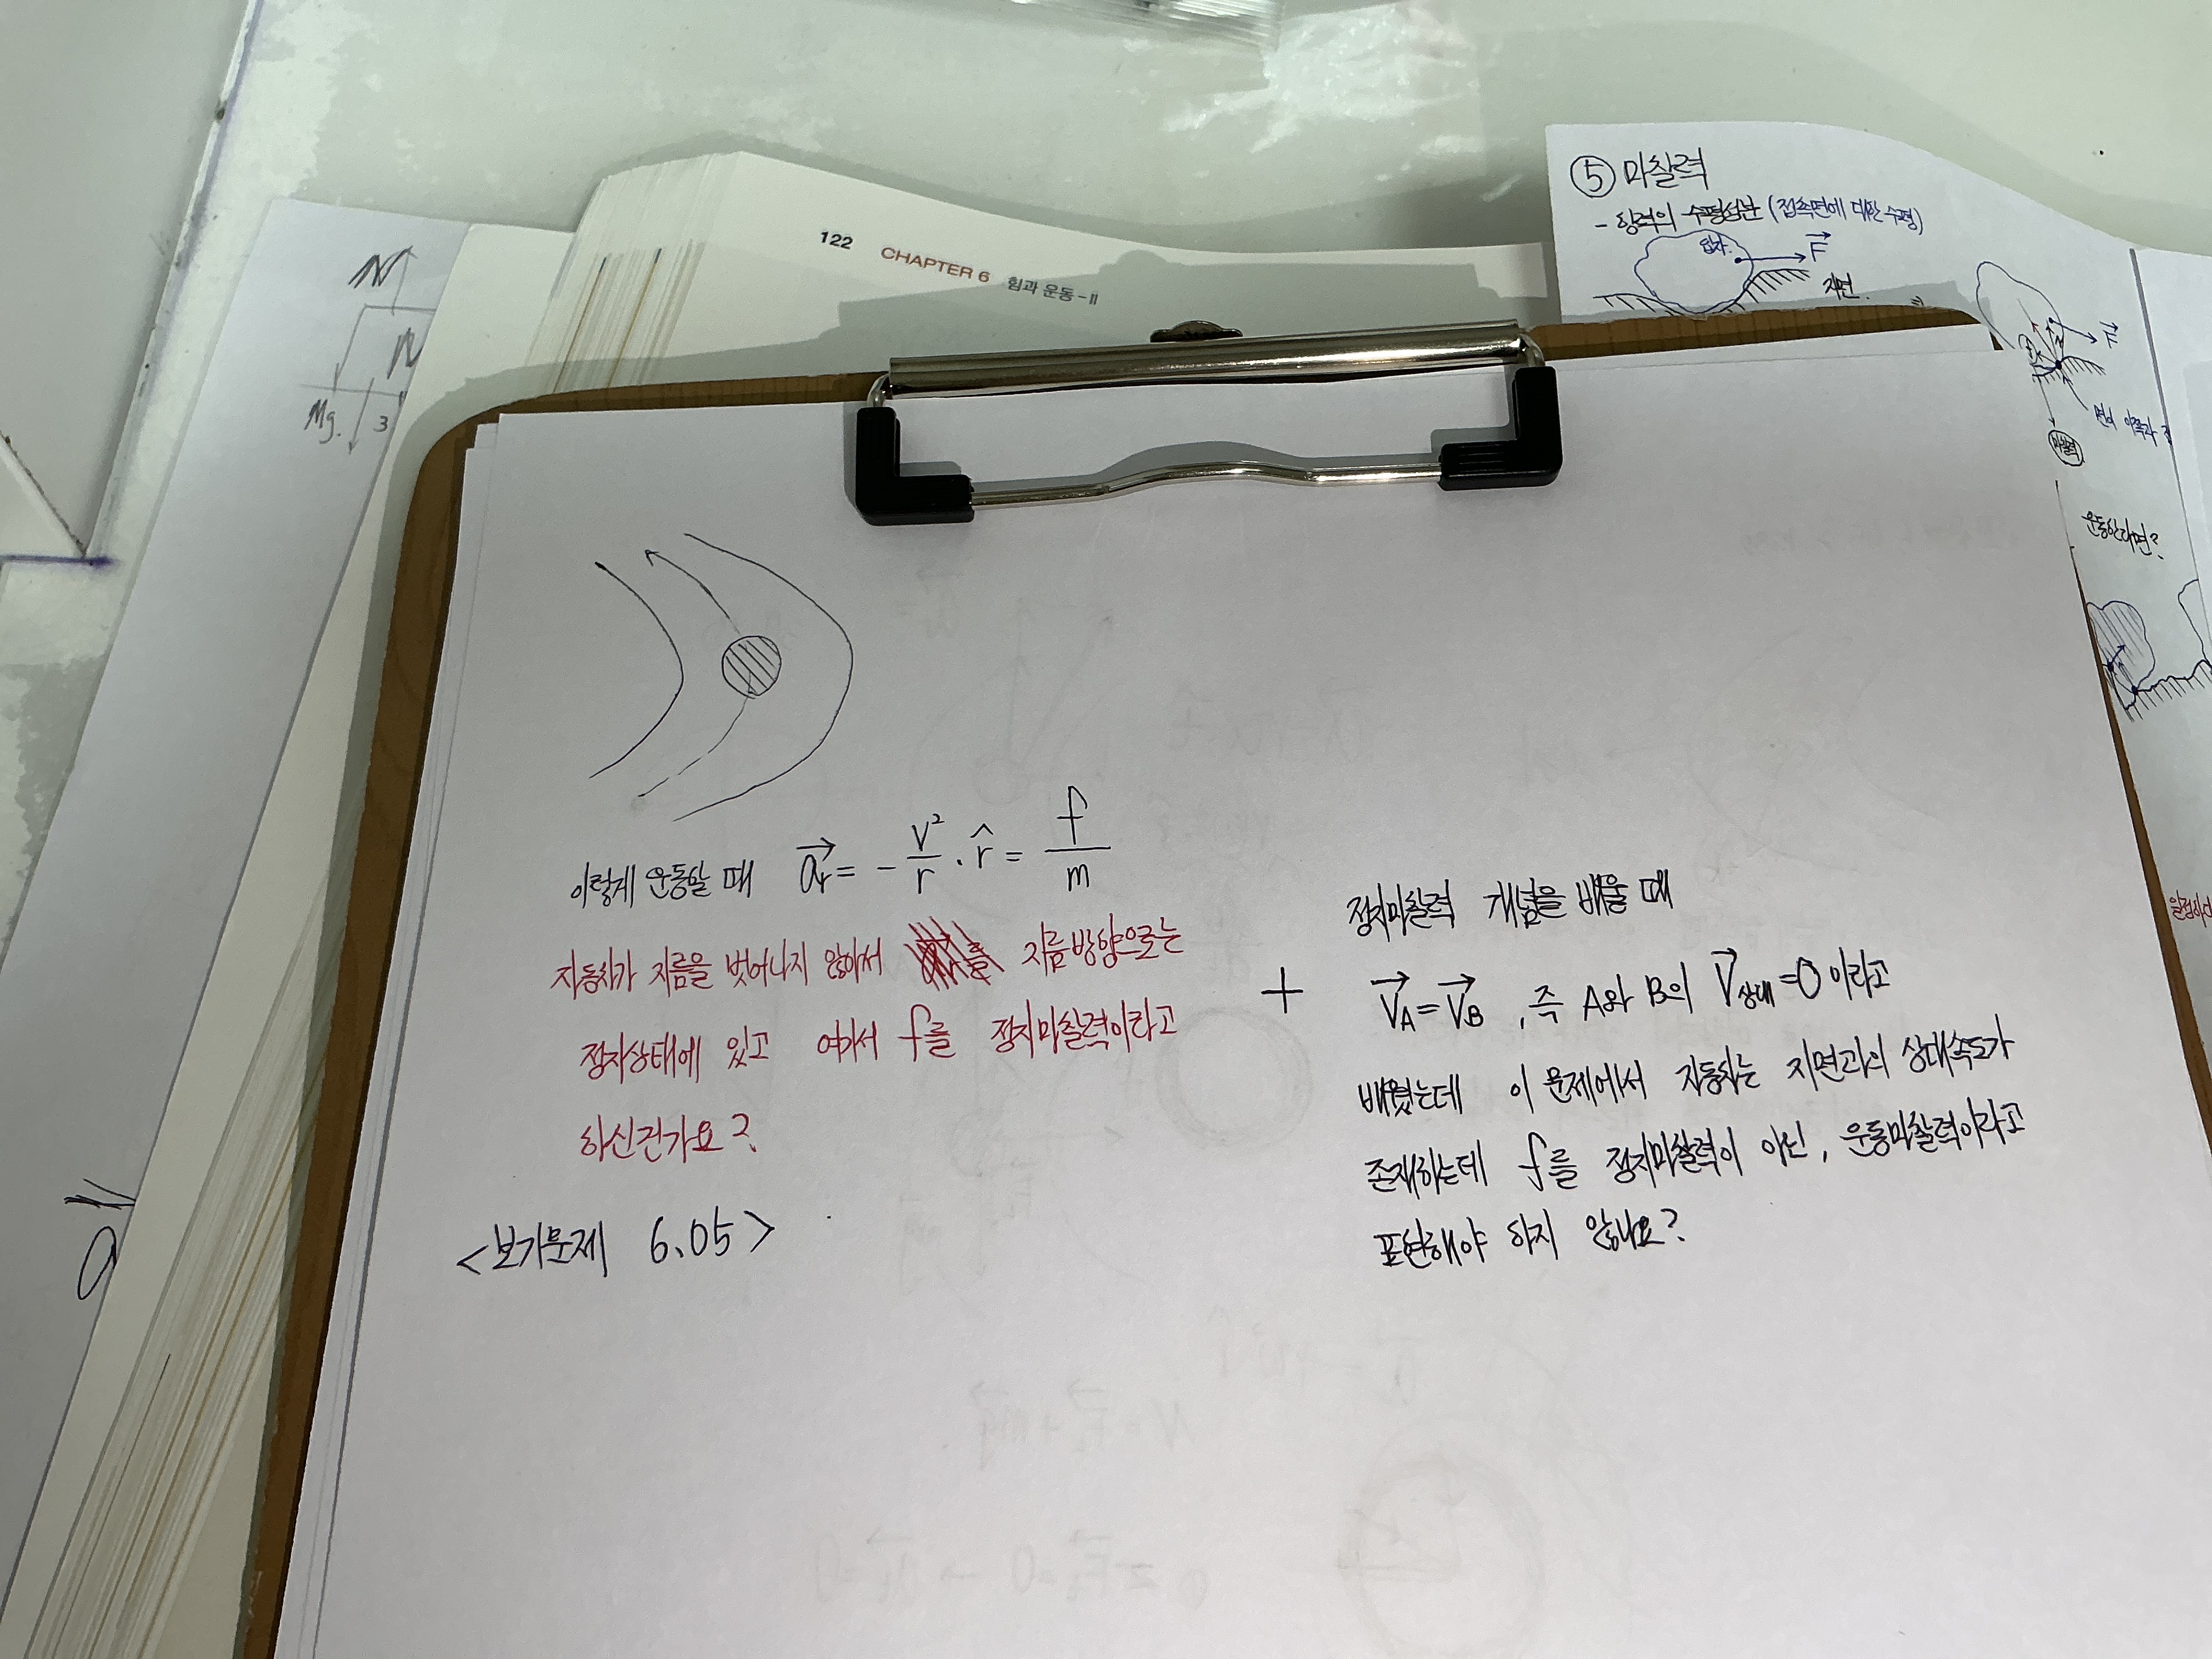 122 CHAPTER 6 힘과 운동-II
⑤ 마찰력
- 항력의 수평성분 (접촉면에 대한 수평)
F
지면.
F
면의 이쪽과
마찰력
운동한다면?
N
N
Mg.
3
a
이렇게 운동할 때 a⃗r = - v²/r · r̂ = f/m
자동차가 지름을 벗어나지 않아서 지름방향으로는
정지상태에 있고 여기서 f를 정지마찰력이라고
하신건가요?
<보기문제 6.05>
+
정지마찰력 개념을 배울 때
V⃗A = V⃗B , 즉 A와 B의 V⃗상대=0 이라고
배웠는데 이 문제에서 자동차는 지면과의 상대속도가
존재하는데 f를 정지마찰력이 아닌, 운동마찰력이라고
표현해야 하지 않나요?